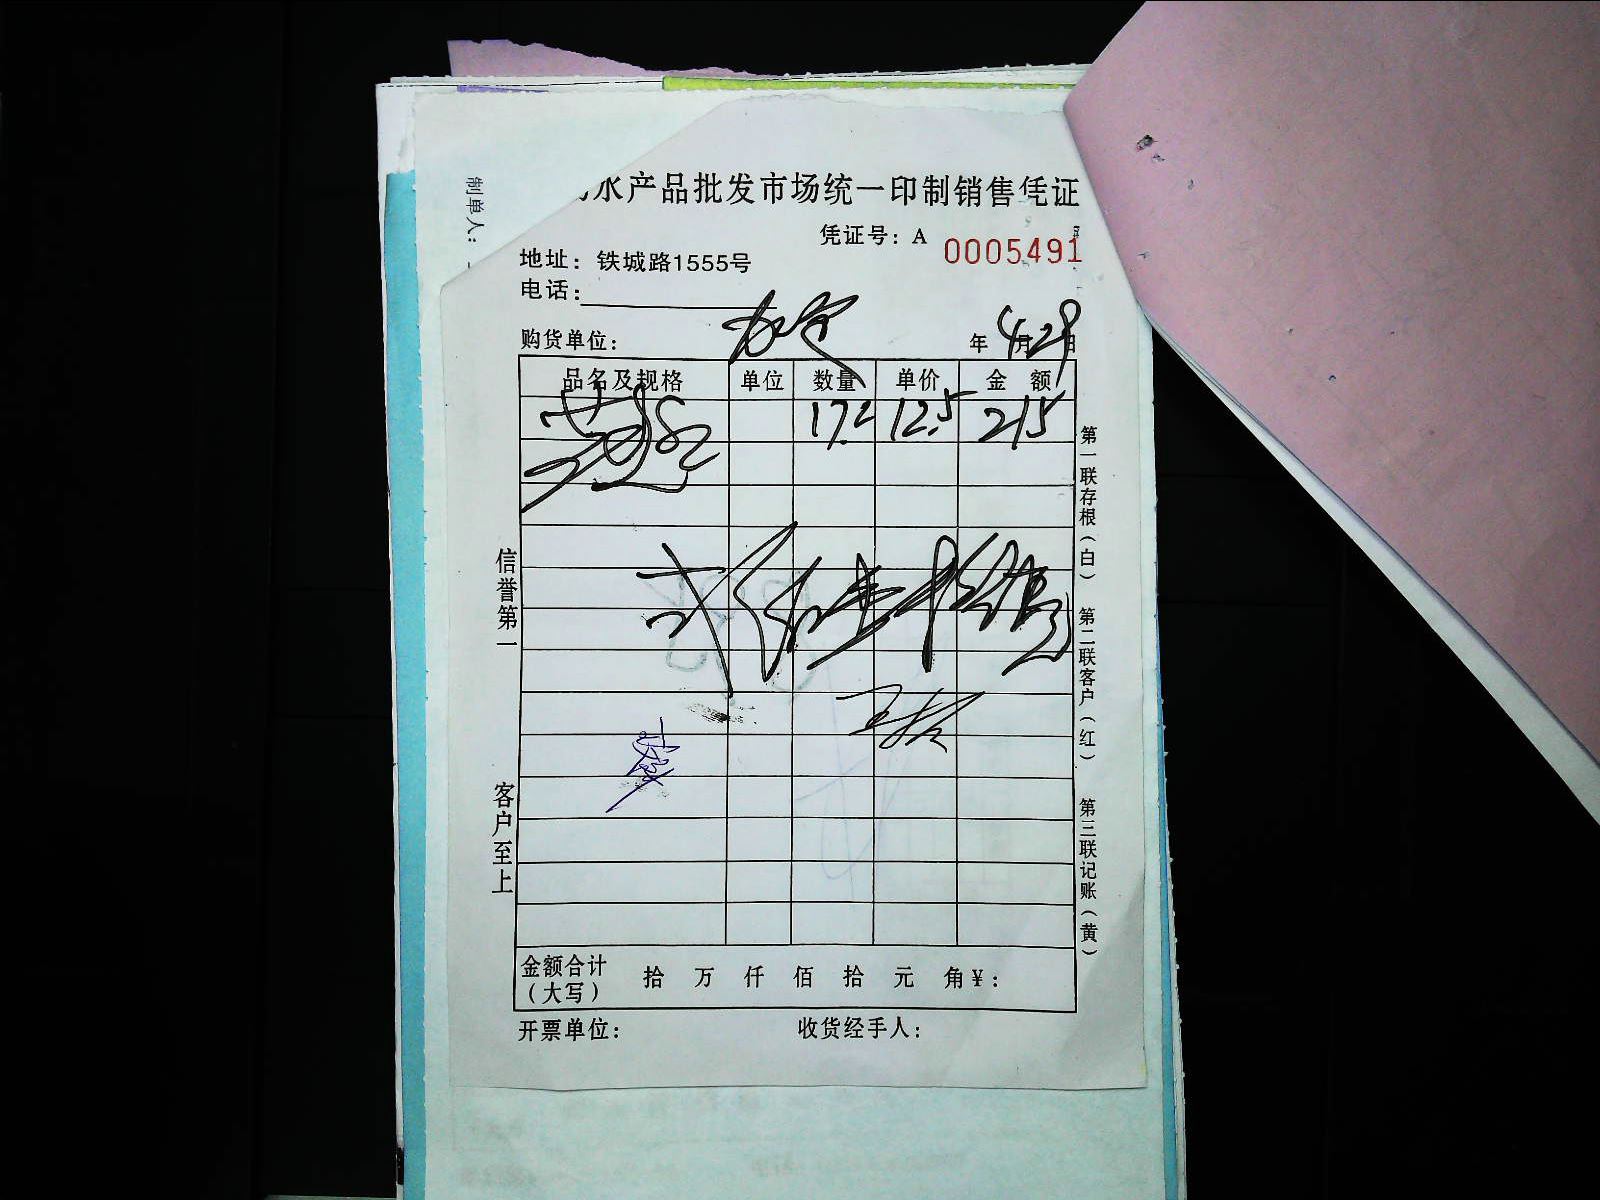 水产品批发市场统一印制销售凭证
制单人：
凭证号：A 0005491
地址：铁城路1555号
电话：
购货单位： 年4月29日
品名及规格 单位 数量 单价 金 额
17.2 12.5 215
第一联存根（白） 第二联客户（红） 第三联记账（黄）
信誉第一 客户至上
金额合计（大写） 拾 万 仟 佰 拾 元 角￥：
开票单位： 收货经手人：